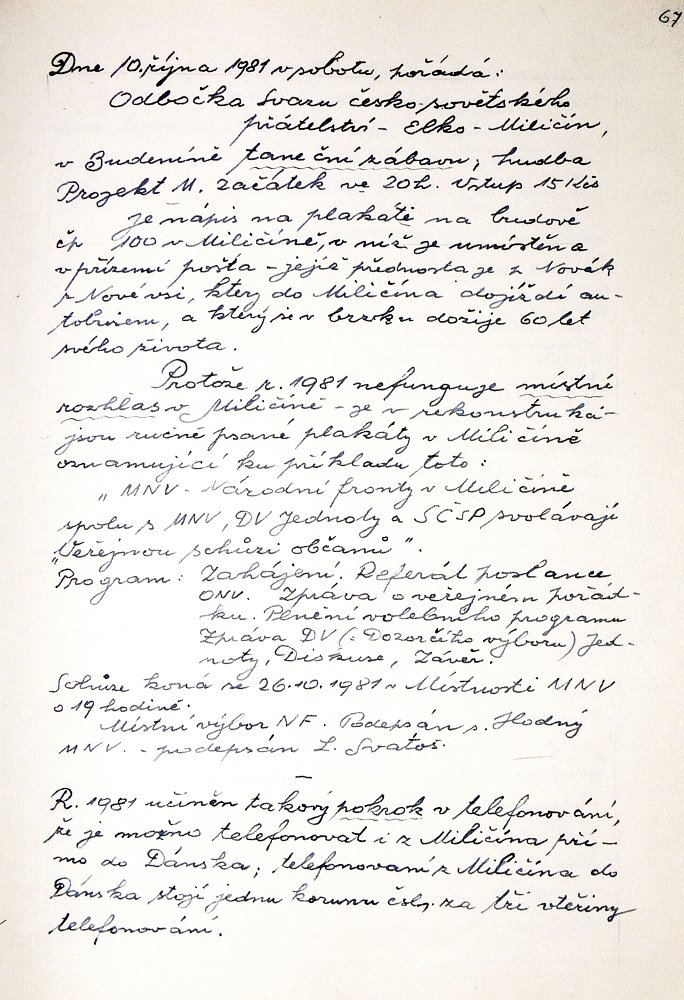 67
Dne 10. října 1981 v sobotu, pořádá:
Odbočka Svazu česko-sovětského
přátelství - Elko - Miličín,
v Budeníně taneční zábavu; hudba
Projekt M. Začátek ve 20 h. Vstup 15 Kčs
je nápis na plakátě na budově
čp 100 v Miličíně, v níž je umístěna
v přízemí pošta - jejíž přednosta je z Novák
z Nové vsi, který do Miličína dojíždí au-
tobusem, a který se v brzku dožije 60 let
svého života.
Protože r. 1981 nefunguje místní
rozhlas v Miličíně - je v rekonstrukci -
jsou ručně psané plakáty v Miličíně
oznamující ku příkladu toto:
„MNV - Národní fronty v Miličíně
spolu s MNV, DV Jednoty a SČSP svolávají
"Veřejnou schůzi občanů".
Program: Zahájení. Referát poslance
ONV. Zpráva o veřejném pořád-
ku. Plnění volebního programu
Zpráva DV (: Dozorčího výboru) Jed-
noty, Diskuse, Závěr.
Schůze koná se 26.10.1981 v Místnosti MNV
o 19 hodině.
Místní výbor NF. Podepsán s. Hodný
MNV. - podepsán L. Svatoš.
R. 1981 učiněn takový pokrok v telefonování,
že je možno telefonovat i z Miličína pří-
mo do Dánska; telefonovaní z Miličína do
Dánska stojí jednu korunu čsl. za tři vteřiny
telefonování.